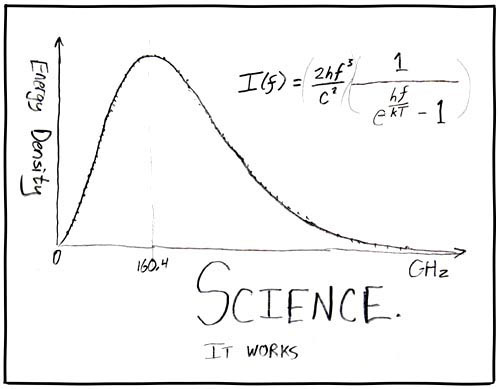 Energy Density
I(f) = (2hf³/c²)(1/(e^(hf/kT) - 1))
0
160.4
GHz
SCIENCE.
IT WORKS